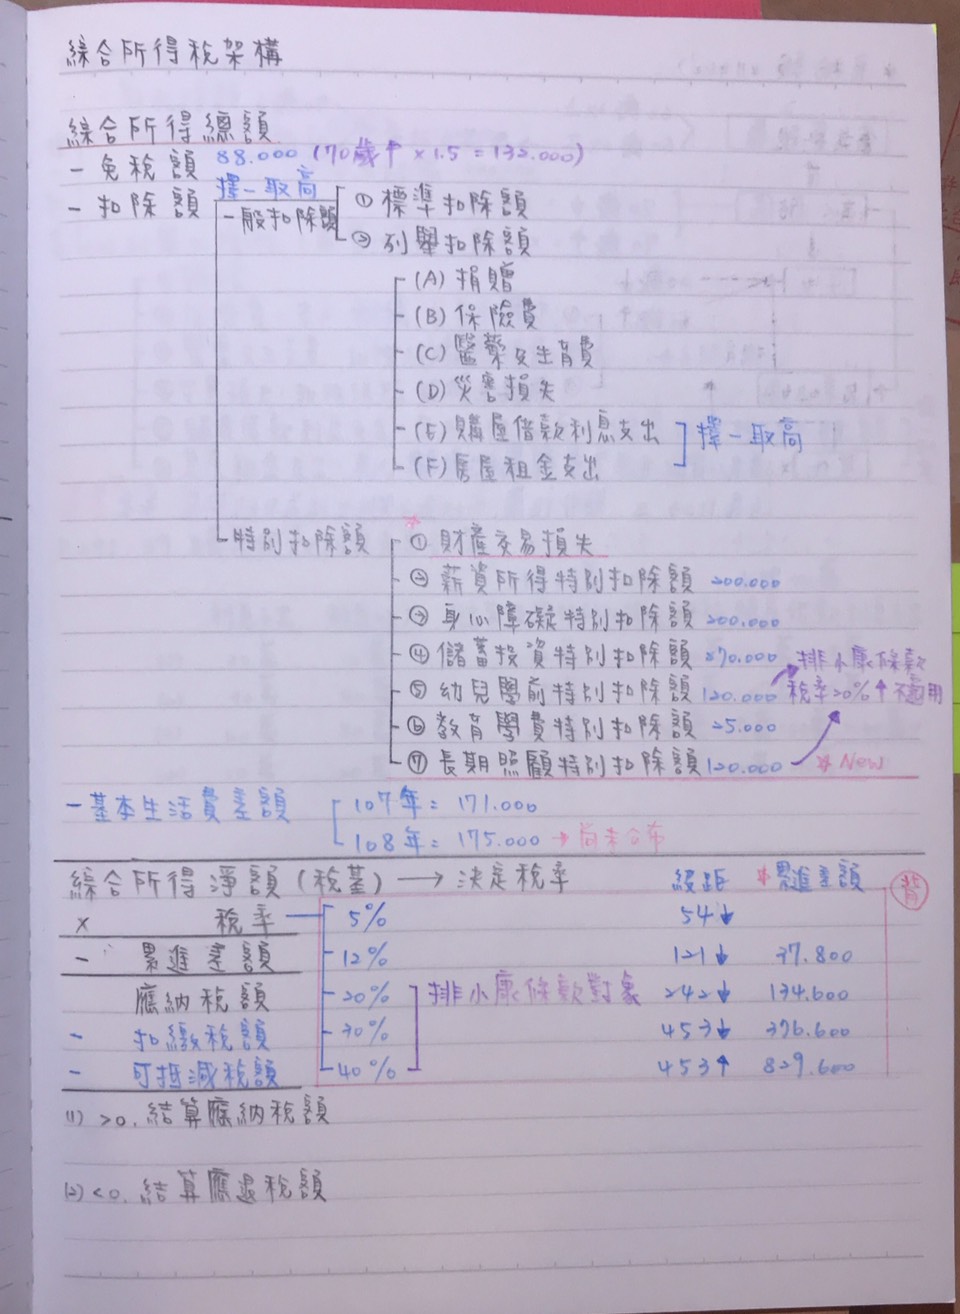 綜合所得稅架構
綜合所得總額
- 免稅額 88.000 (70歲↑ × 1.5 = 132.000)
擇一取高
- 扣除額 一般扣除額 ① 標準扣除額
② 列舉扣除額
(A) 捐贈
(B) 保險費
(C) 醫藥及生育費
(D) 災害損失
(E) 購屋借款利息支出
(F) 房屋租金支出
擇一取高
特別扣除額 * ① 財產交易損失
② 薪資所得特別扣除額 200.000
③ 身心障礙特別扣除額 200.000
④ 儲蓄投資特別扣除額 270.000
⑤ 幼兒學前特別扣除額 120.000
⑥ 教育學費特別扣除額 25.000
⑦ 長期照顧特別扣除額 120.000 * New
排小康條款
稅率20%↑不適用
- 基本生活費差額 107年 = 171.000
108年 = 175.000 → 尚未公布
綜合所得淨額 (稅基) → 決定稅率 級距 * 累進差額 背
× 稅率 5% 54↓
- 累進差額 12% 121↓ 37.800
應納稅額 20% 242↓ 134.600
- 扣繳稅額 30% 453↓ 376.600
- 可抵減稅額 40% 453↑ 829.600
排小康條款對象
(1) >0. 結算應納稅額
(2) <0. 結算應退稅額